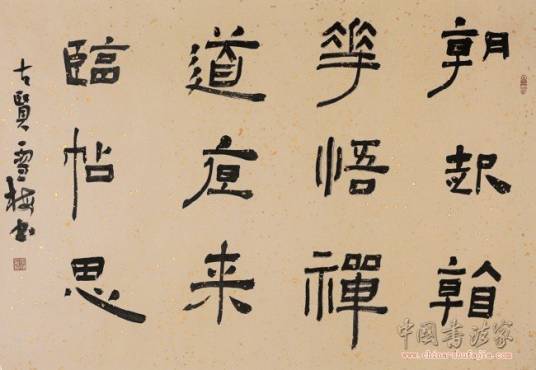 朝起看
華悟禪
道夜来
臨帖思
古賢 雪梅书
中国书法家
www.chinashufajia.com